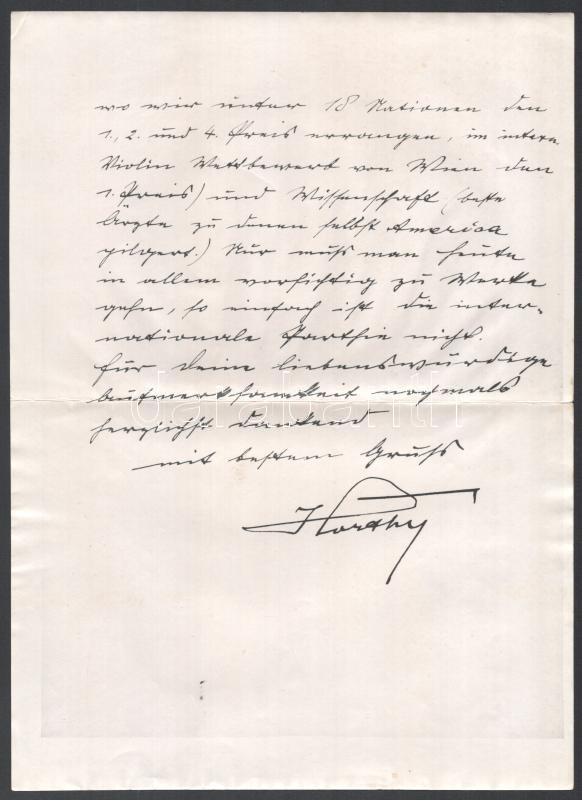 wo wir unter 18 Nationen den
1., 2. und 4. Preis errangen, im intern.
Violin Wettbewerb von Wien den
1. Preis) und Wissenschaft (beste
Ärzte zu denen selbst America
pilgert.) Nur muss man heute
in allem vorsichtig zu Werke
gehn, so einfach ist die inter-
nationale Parthie nicht.
für deine liebenswürdige
Aufmerksamkeit nochmals
herzlichst dankend
mit bestem Gruss
Horthy
darabanth